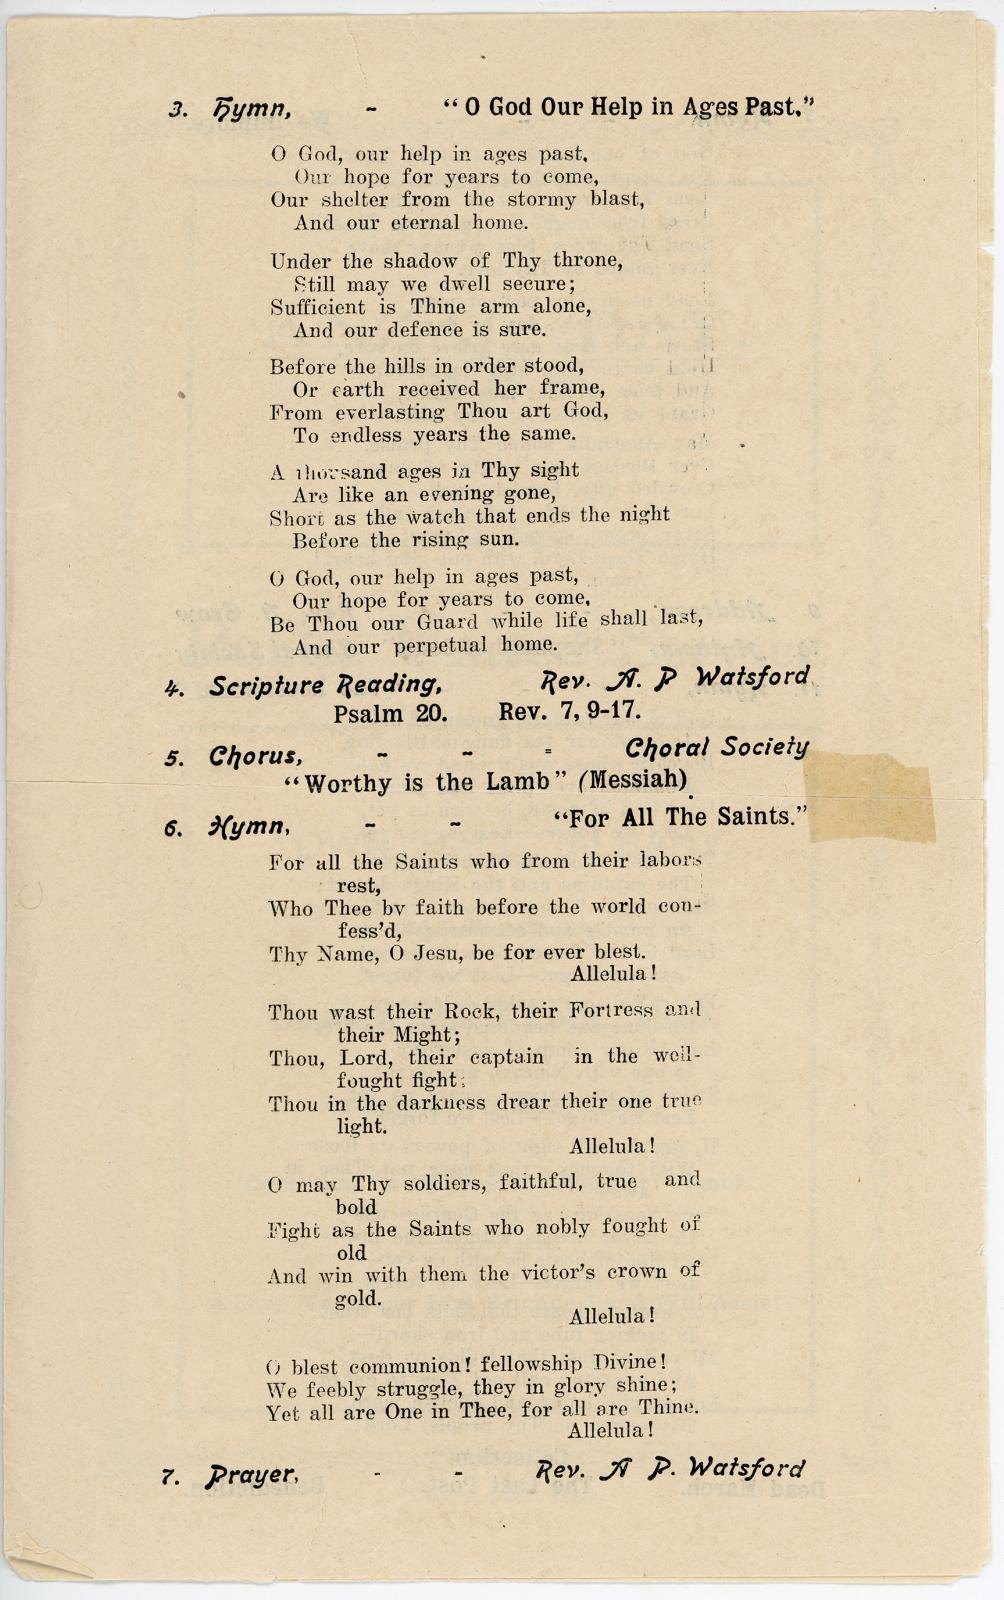 3. Hymn, - "O God Our Help in Ages Past."
O God, our help in ages past,
Our hope for years to come,
Our shelter from the stormy blast,
And our eternal home.
Under the shadow of Thy throne,
Still may we dwell secure;
Sufficient is Thine arm alone,
And our defence is sure.
Before the hills in order stood,
Or earth received her frame,
From everlasting Thou art God,
To endless years the same.
A thousand ages in Thy sight
Are like an evening gone,
Short as the watch that ends the night
Before the rising sun.
O God, our help in ages past,
Our hope for years to come,
Be Thou our Guard while life shall last,
And our perpetual home.
4. Scripture Reading, Rev. A. P Watsford
Psalm 20. Rev. 7, 9-17.
5. Chorus, - - = Choral Society
"Worthy is the Lamb" (Messiah)
6. Hymn, - - "For All The Saints."
For all the Saints who from their labors
rest,
Who Thee by faith before the world con-
fess'd,
Thy Name, O Jesu, be for ever blest.
Allelula!
Thou wast their Rock, their Fortress and
their Might;
Thou, Lord, their captain in the well-
fought fight;
Thou in the darkness drear their one true
light.
Allelula!
O may Thy soldiers, faithful, true and
bold
Fight as the Saints who nobly fought of
old
And win with them the victor's crown of
gold.
Allelula!
O blest communion! fellowship Divine!
We feebly struggle, they in glory shine;
Yet all are One in Thee, for all are Thine.
Allelula!
7. Prayer, - - Rev. A P. Watsford